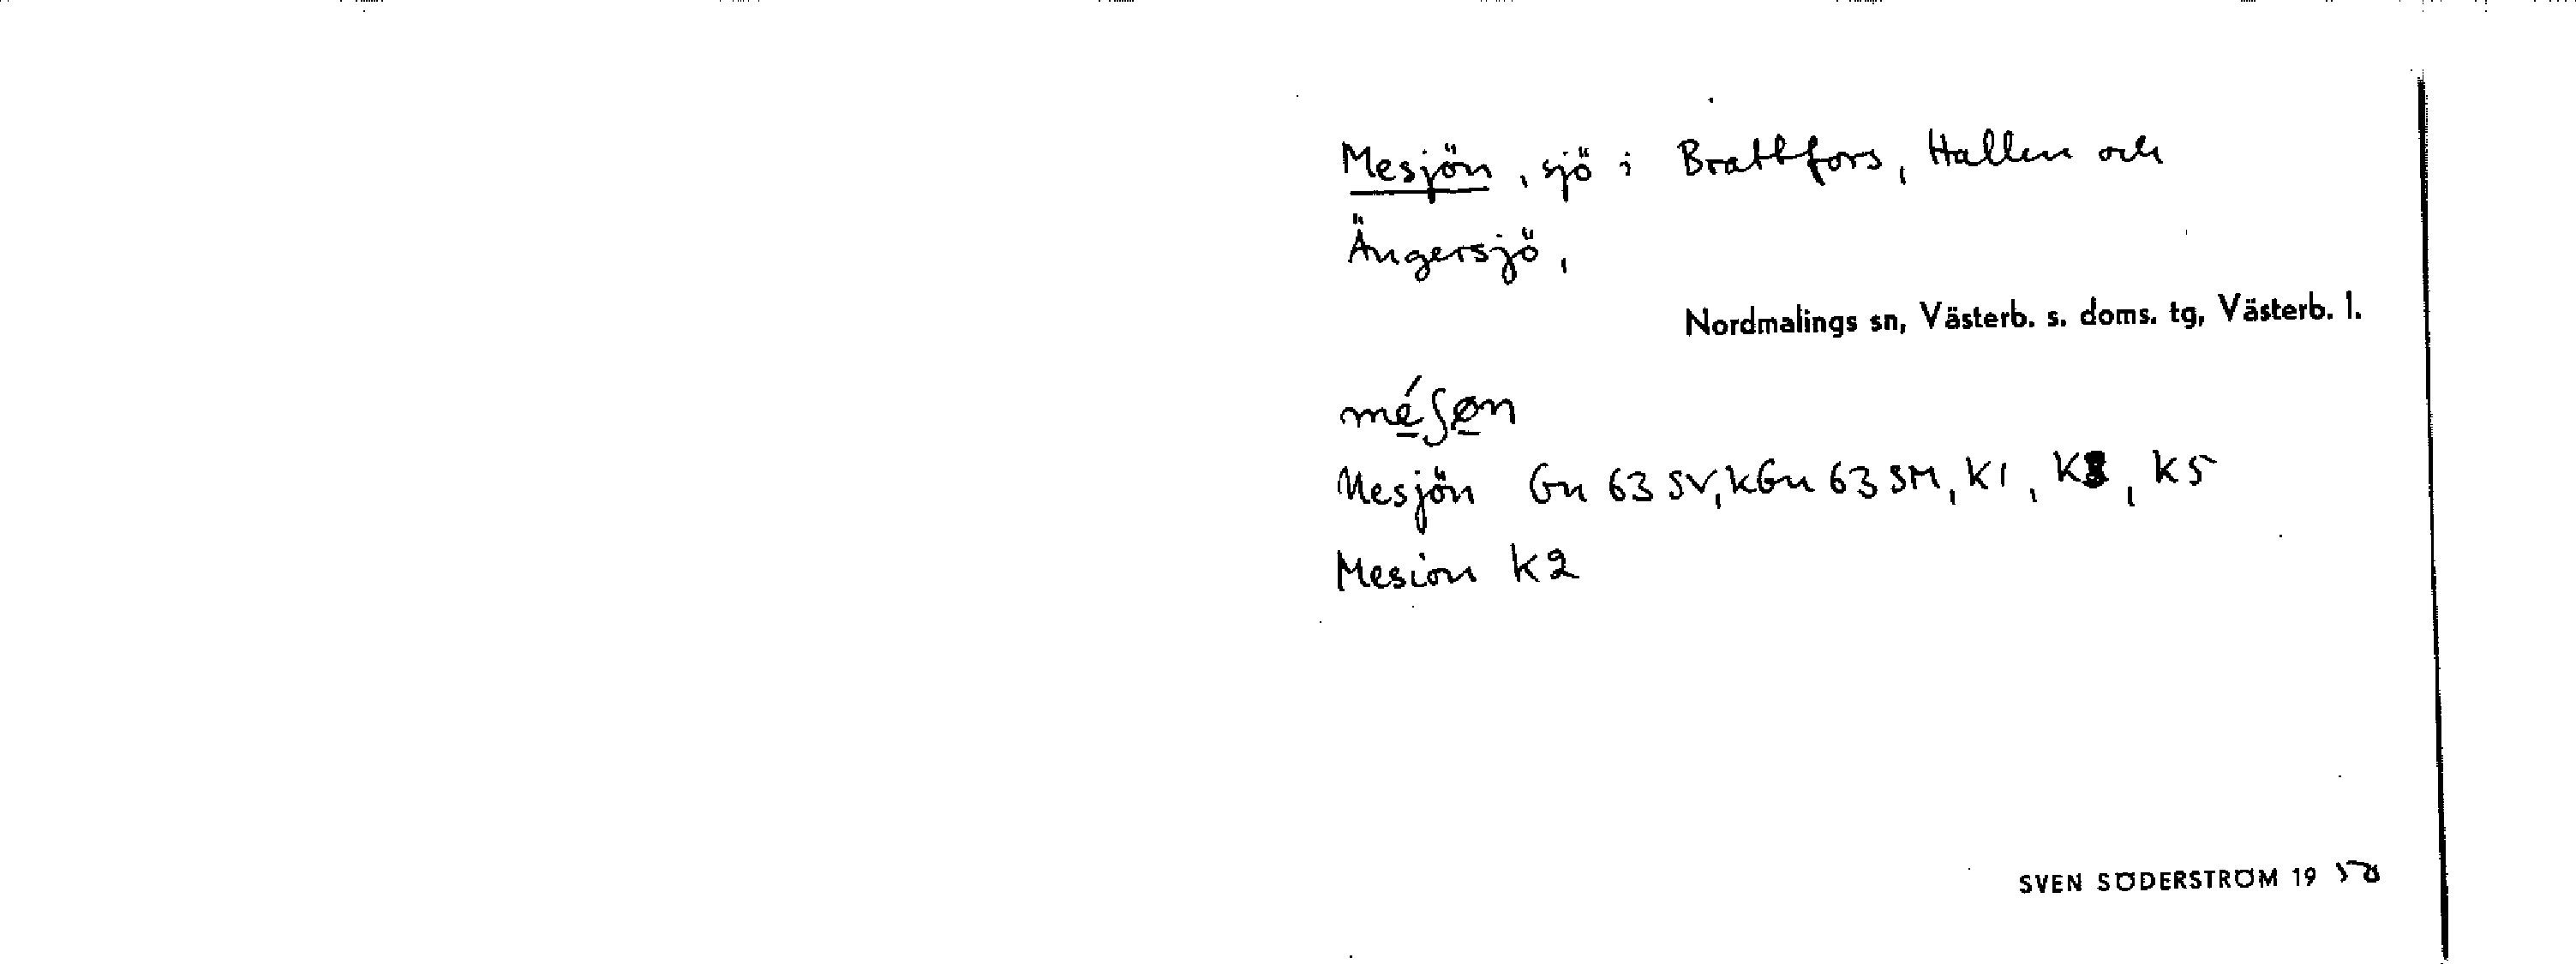 Mesjön, sjö i Brattfors, Hallen och
Ängersjö,
Nordmalings sn, Västerb. s. doms. tg, Västerb. l.
méʃøn
Mesjön Gn 63 SV, kGn 63 SM, K1, K3, K5
Mesion K2
SVEN SÖDERSTRÖM 19